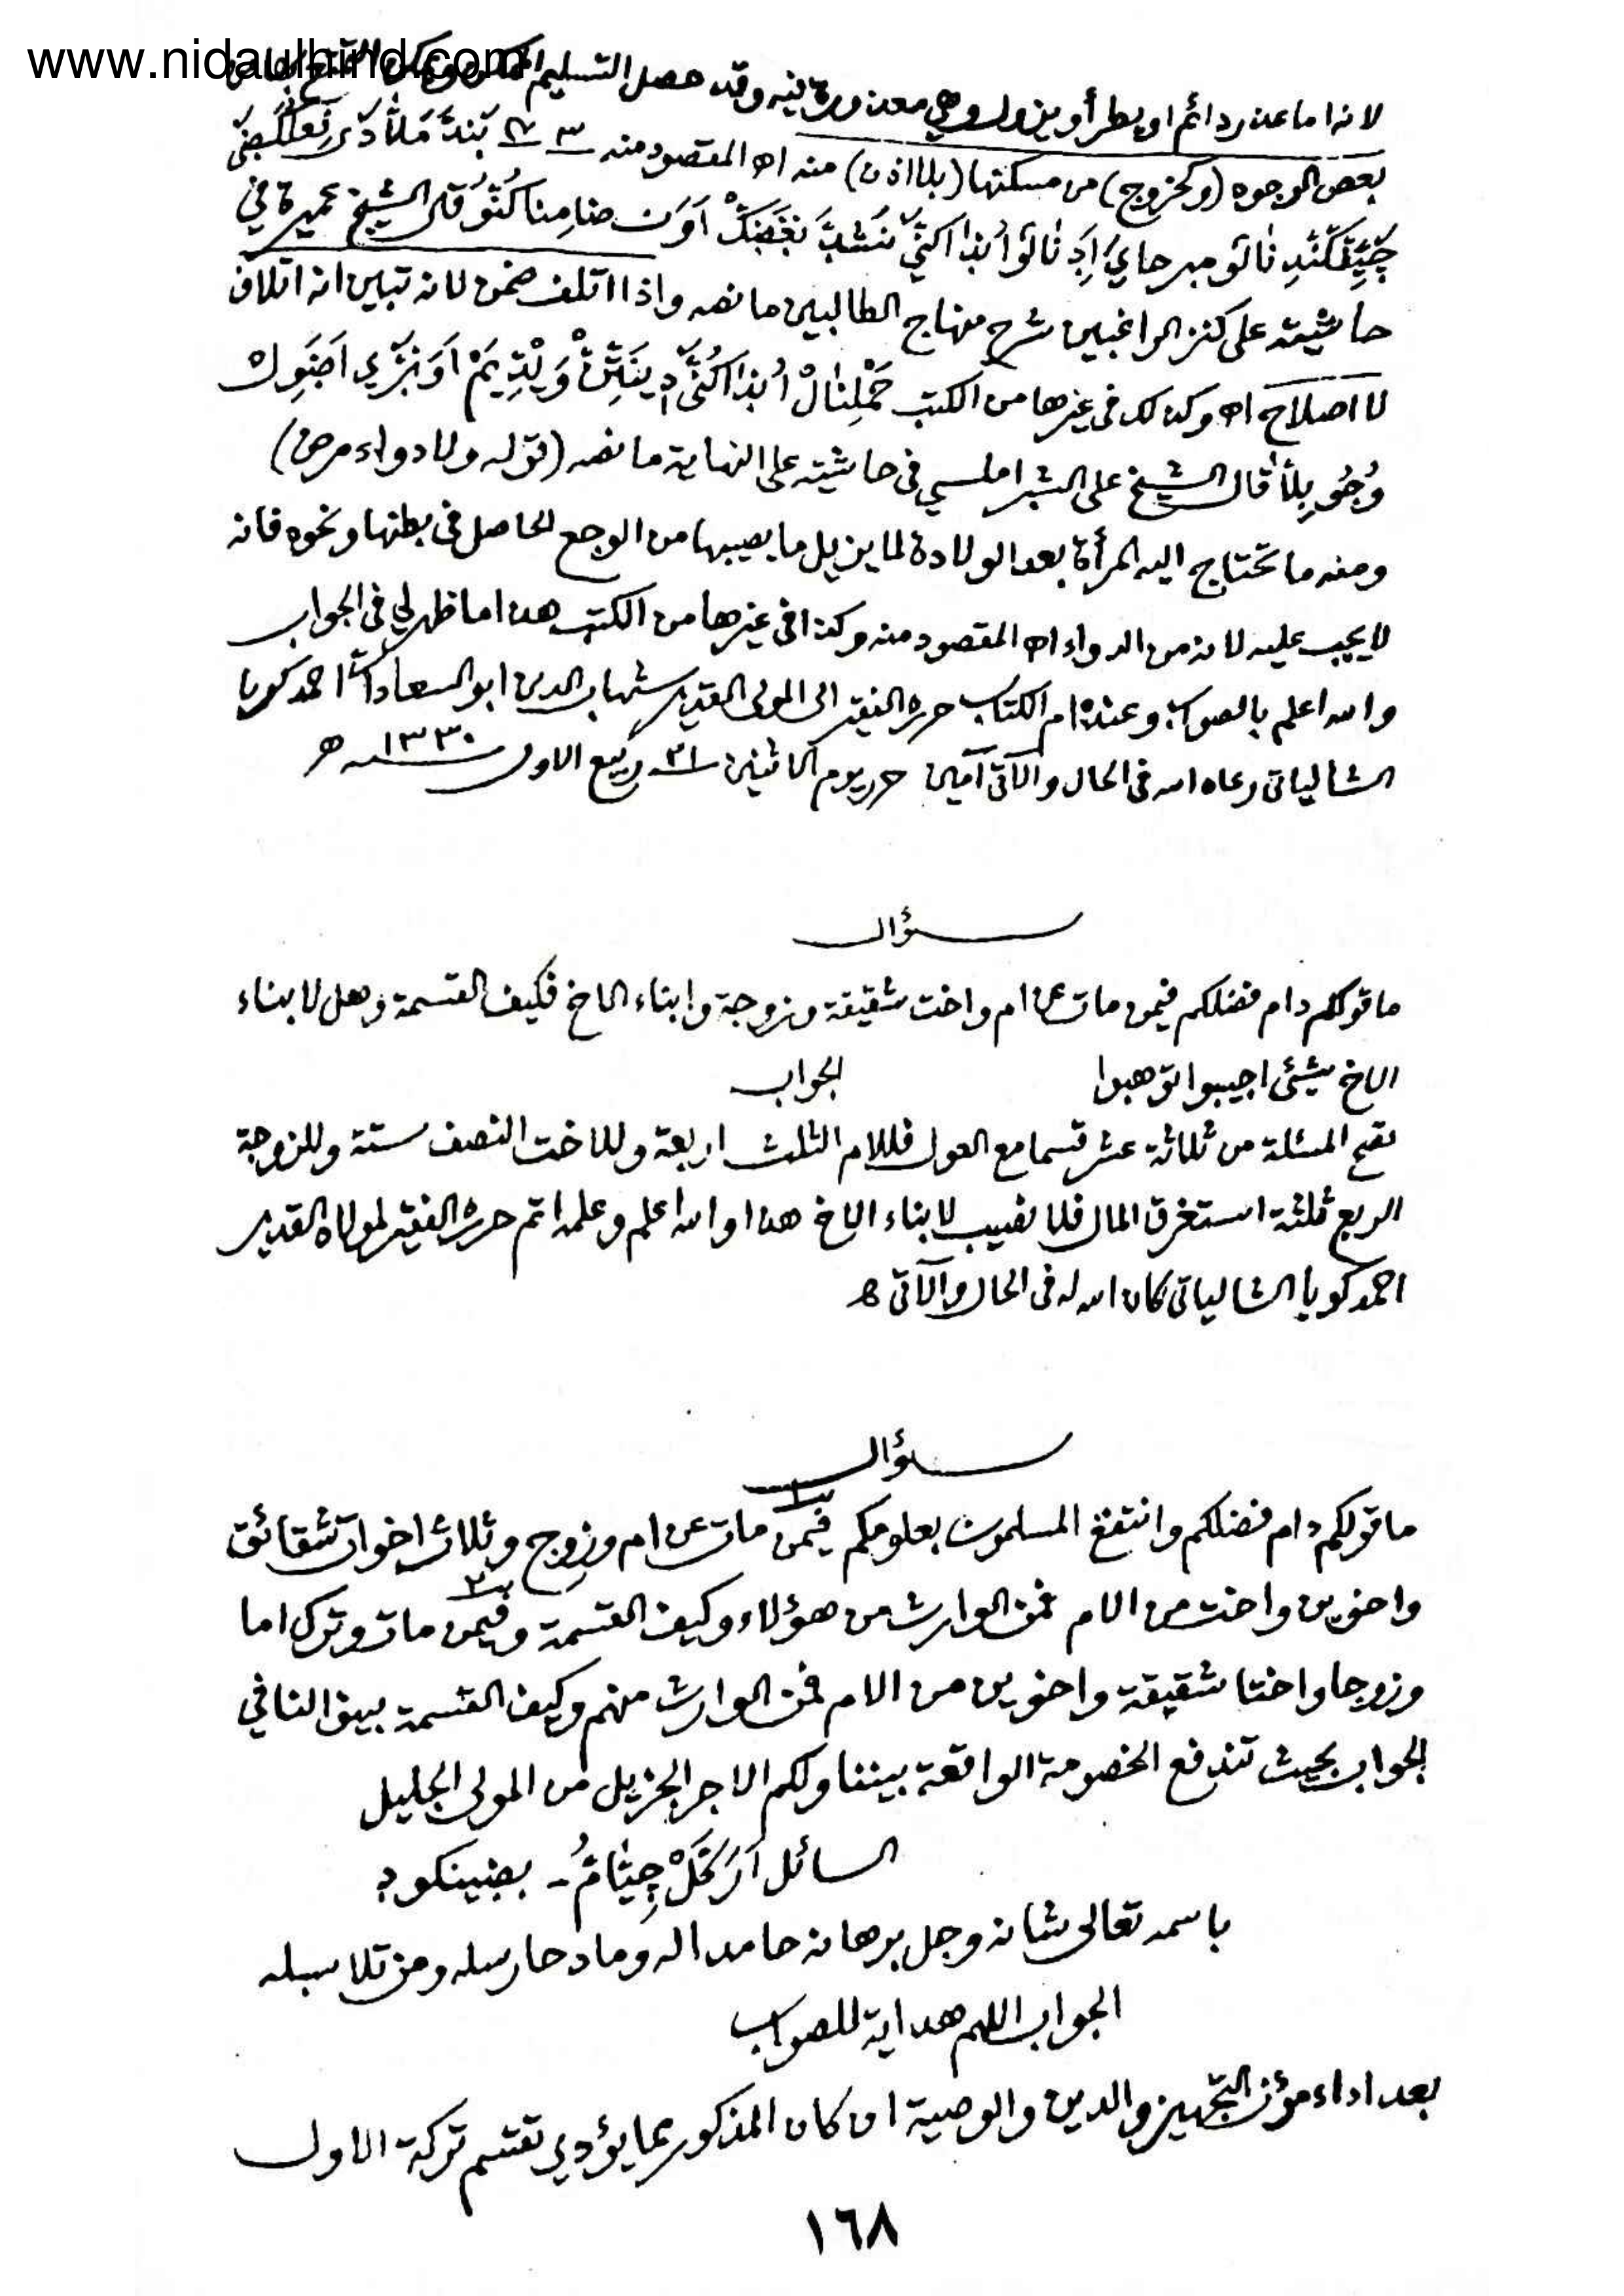 www.nidaulhind.com
لانه اما عذر دائم او يطرأ ويزول وهي معذورة فيه وقد حصل التسليم الممكن
بعض الوجوه (وكخروج) من مسكنها (بلا اذن) منه اه المقصود منه
قال الشيخ عميرة في
حاشيته على كنز الراغبين شرح منهاج الطالبين ما نصه واذا اتلف ضمن لانه تبين انه اتلاف
لا اصلاح اه وكذلك في غيرها من الكتب
قال الشيخ على الشبراملسي في حاشيته على النهاية ما نصه (قوله ولا دواء مرض)
ومنه ما تحتاج اليه المرأة بعد الولادة لما يزيل ما يصيبها من الوجع الحاصل في بطنها ونحوه فانه
لا يجب عليه لانه من الدواء اه المقصود منه وكذا في غيرها من الكتب هذا ما ظهر لي في الجواب
والله اعلم بالصواب وعنده ام الكتاب حرره الفقير الى المولى القدير شهاب الدين ابو السعادات احمد كويا
الشالياتي رعاه الله في الحال والآتي آمين حرر يوم الاثنين ٢١ ربيع الاول سنة ١٣٣٠ ه
سؤال
ما قولكم دام فضلكم فيمن مات عن ام واخت شقيقة وزوجة وابناء الاخ فكيف القسمة وهل لابناء
الاخ شيئى اجيبوا توهبوا الجواب
تصح المسئلة من ثلاثة عشر قسما مع العول فللام الثلث اربعة وللاخت النصف ستة وللزوجة
الربع ثلثة استغرق المال فلا نصيب لابناء الاخ هذا والله اعلم وعلمه اتم حرره الفقير لمولاه القدير
احمد كويا الشالياتي كان الله له في الحال والآتي ه
سؤال
ما قولكم دام فضلكم وانتفع المسلمون بعلومكم فيمن مات عن ام وزوج وثلاث اخوات شقائق
واخوين واخت من الام فمن الوارث من هؤلاء وكيف القسمة وفيمن مات وترك اما
وزوجا واختا شقيقة واخوين من الام فمن الوارث منهم وكيف القسمة بينوا لنا في
الجواب بحيث تندفع الخصومة الواقعة بيننا ولكم الاجر الجزيل من المولى الجليل
السائل
باسمه تعالى شانه وجل برهانه حامدا له ومادحا رسله ومن تلا سبله
الجواب اللهم هداية للصواب
بعد اداء مؤن التجهيز والدين والوصية ان كان المذكور بما يؤدي تقتسم تركة الاول
١٦٨